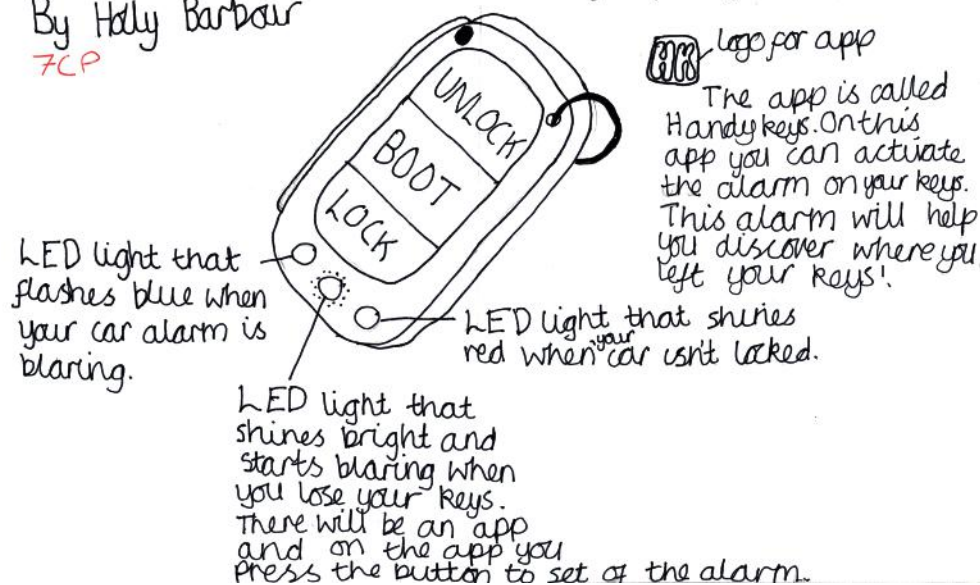 By Holly Barbour
7CP
UNLOCK
BOOT
LOCK
HK
Logo for app
The app is called
Handykeys. On this
app you can activate
the alarm on your keys.
This alarm will help
you discover where you
left your keys!
LED light that
flashes blue when
your car alarm is
blaring.
LED light that shines
red when your car isn't locked.
LED light that
shines bright and
starts blaring when
you lose your keys.
There will be an app
and on the app you
press the button to set of the alarm.